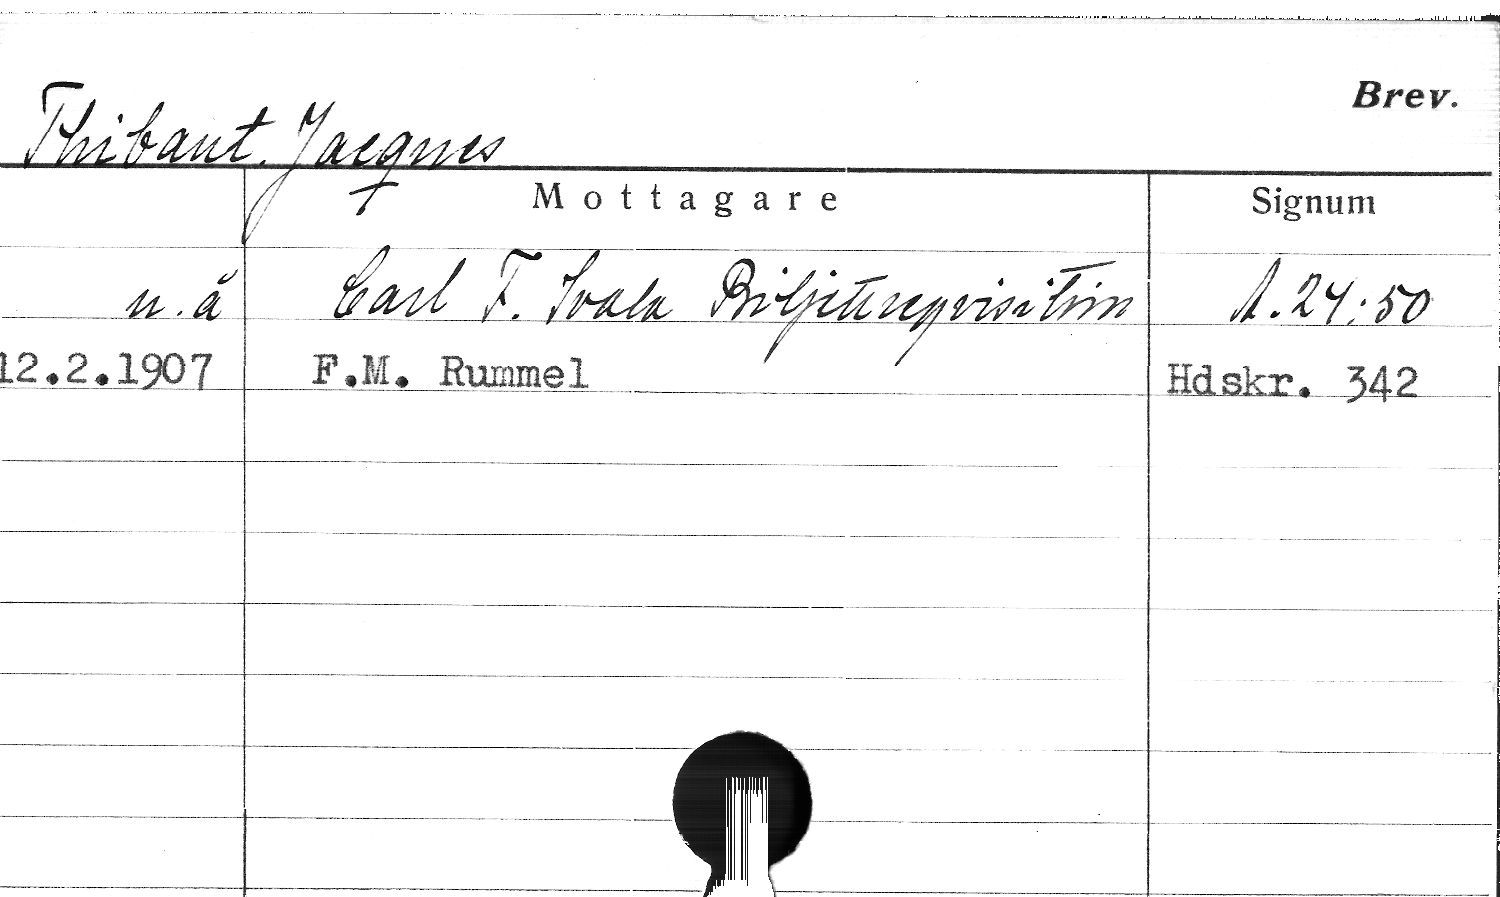 Brev.
Thibaut, Jacques
Mottagare Signum
u.å Carl F. Svala Biljettreqvisition A.24:50
12.2.1907 F.M. Rummel Hdskr. 342